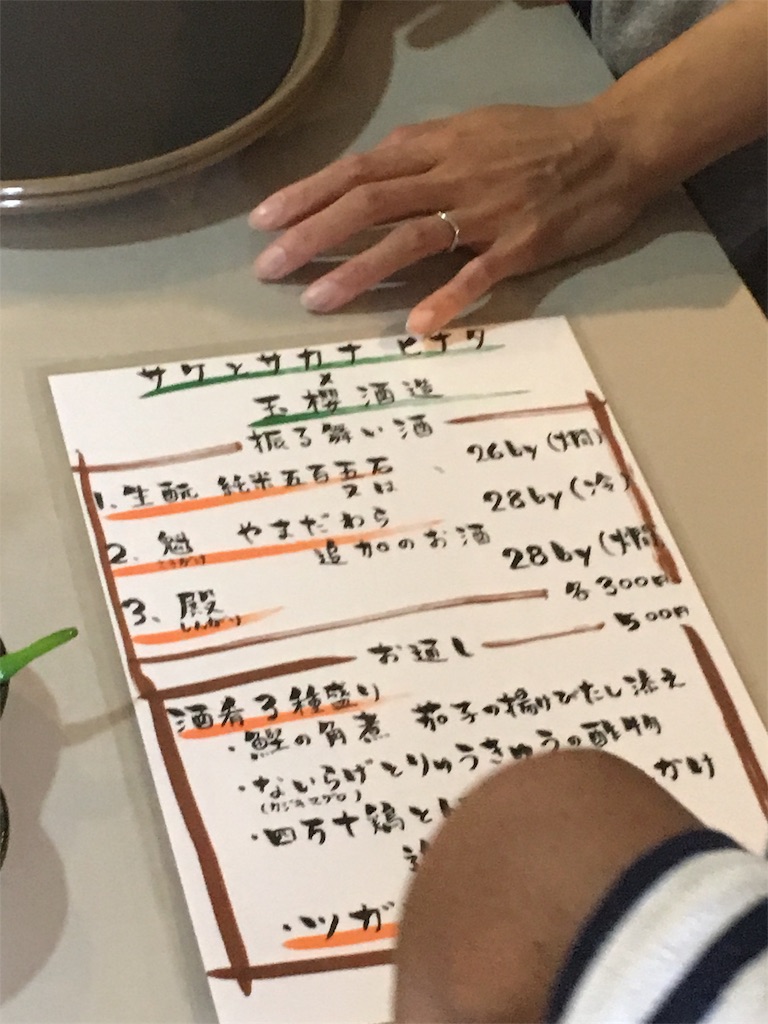 サケトサカナ ヒナタ
×
玉櫻酒造
振る舞い酒
1. 生酛 純米五百万石 26by (燗)
又は
2. 魁 やまだわら 28by (冷)
さきがけ
追加のお酒
3. 殿 28by (燗)
しんがり
各300円
お通し 500円
酒肴3種盛り
・鰹の角煮 茄子の揚げびたし添え
・ないらげとりゅうきゅうの酢物
(カジキマグロ)
・四万十鶏と かけ
・ツガ